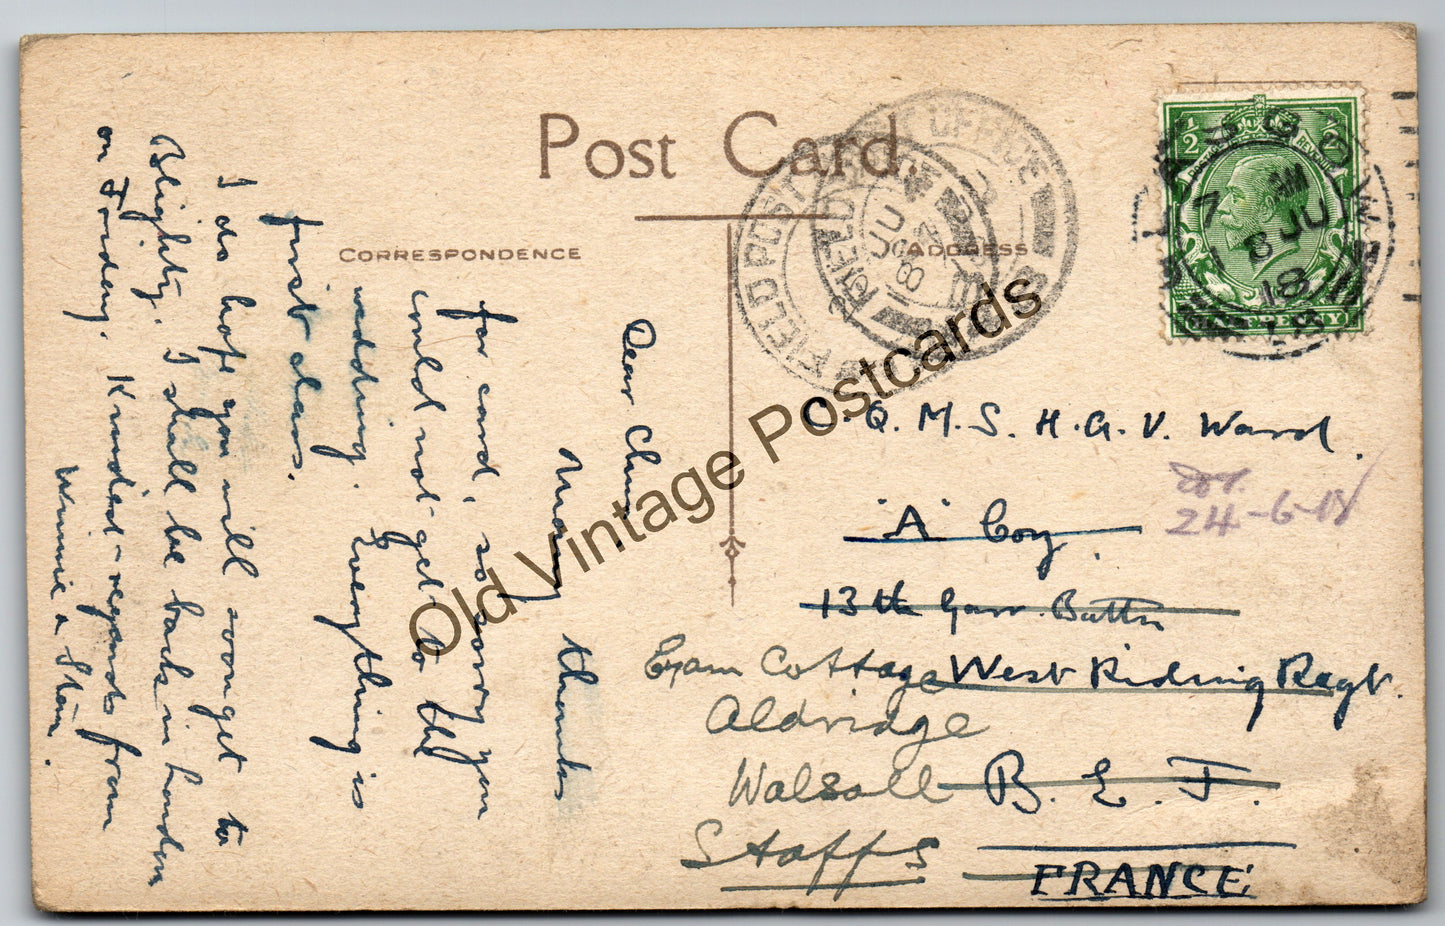 Post Card.
CORRESPONDENCE
ADDRESS
Dear Chris
Many thanks
for card, so sorry you
could not get to the
wedding. Everything is
first class.
I do hope you will soon get to
Blighty. I shall be back in London
on Friday. Kindest regards from
Winnie & Stan.
C.Q.M.S. H.G.V. Ward.
"A" Coy.
13th Garr. Battn
West Riding Regt.
B. E. F.
FRANCE
24-6-18
Exam Cottage
Aldridge
Walsall
Staffs
FIELD POST OFFICE
FIELD POST OFFICE
JU
18
GLASGOW
7 AM
8 JU
18
1/2
1/2
POSTAGE
REVENUE
HALFPENNY
Old Vintage Postcards